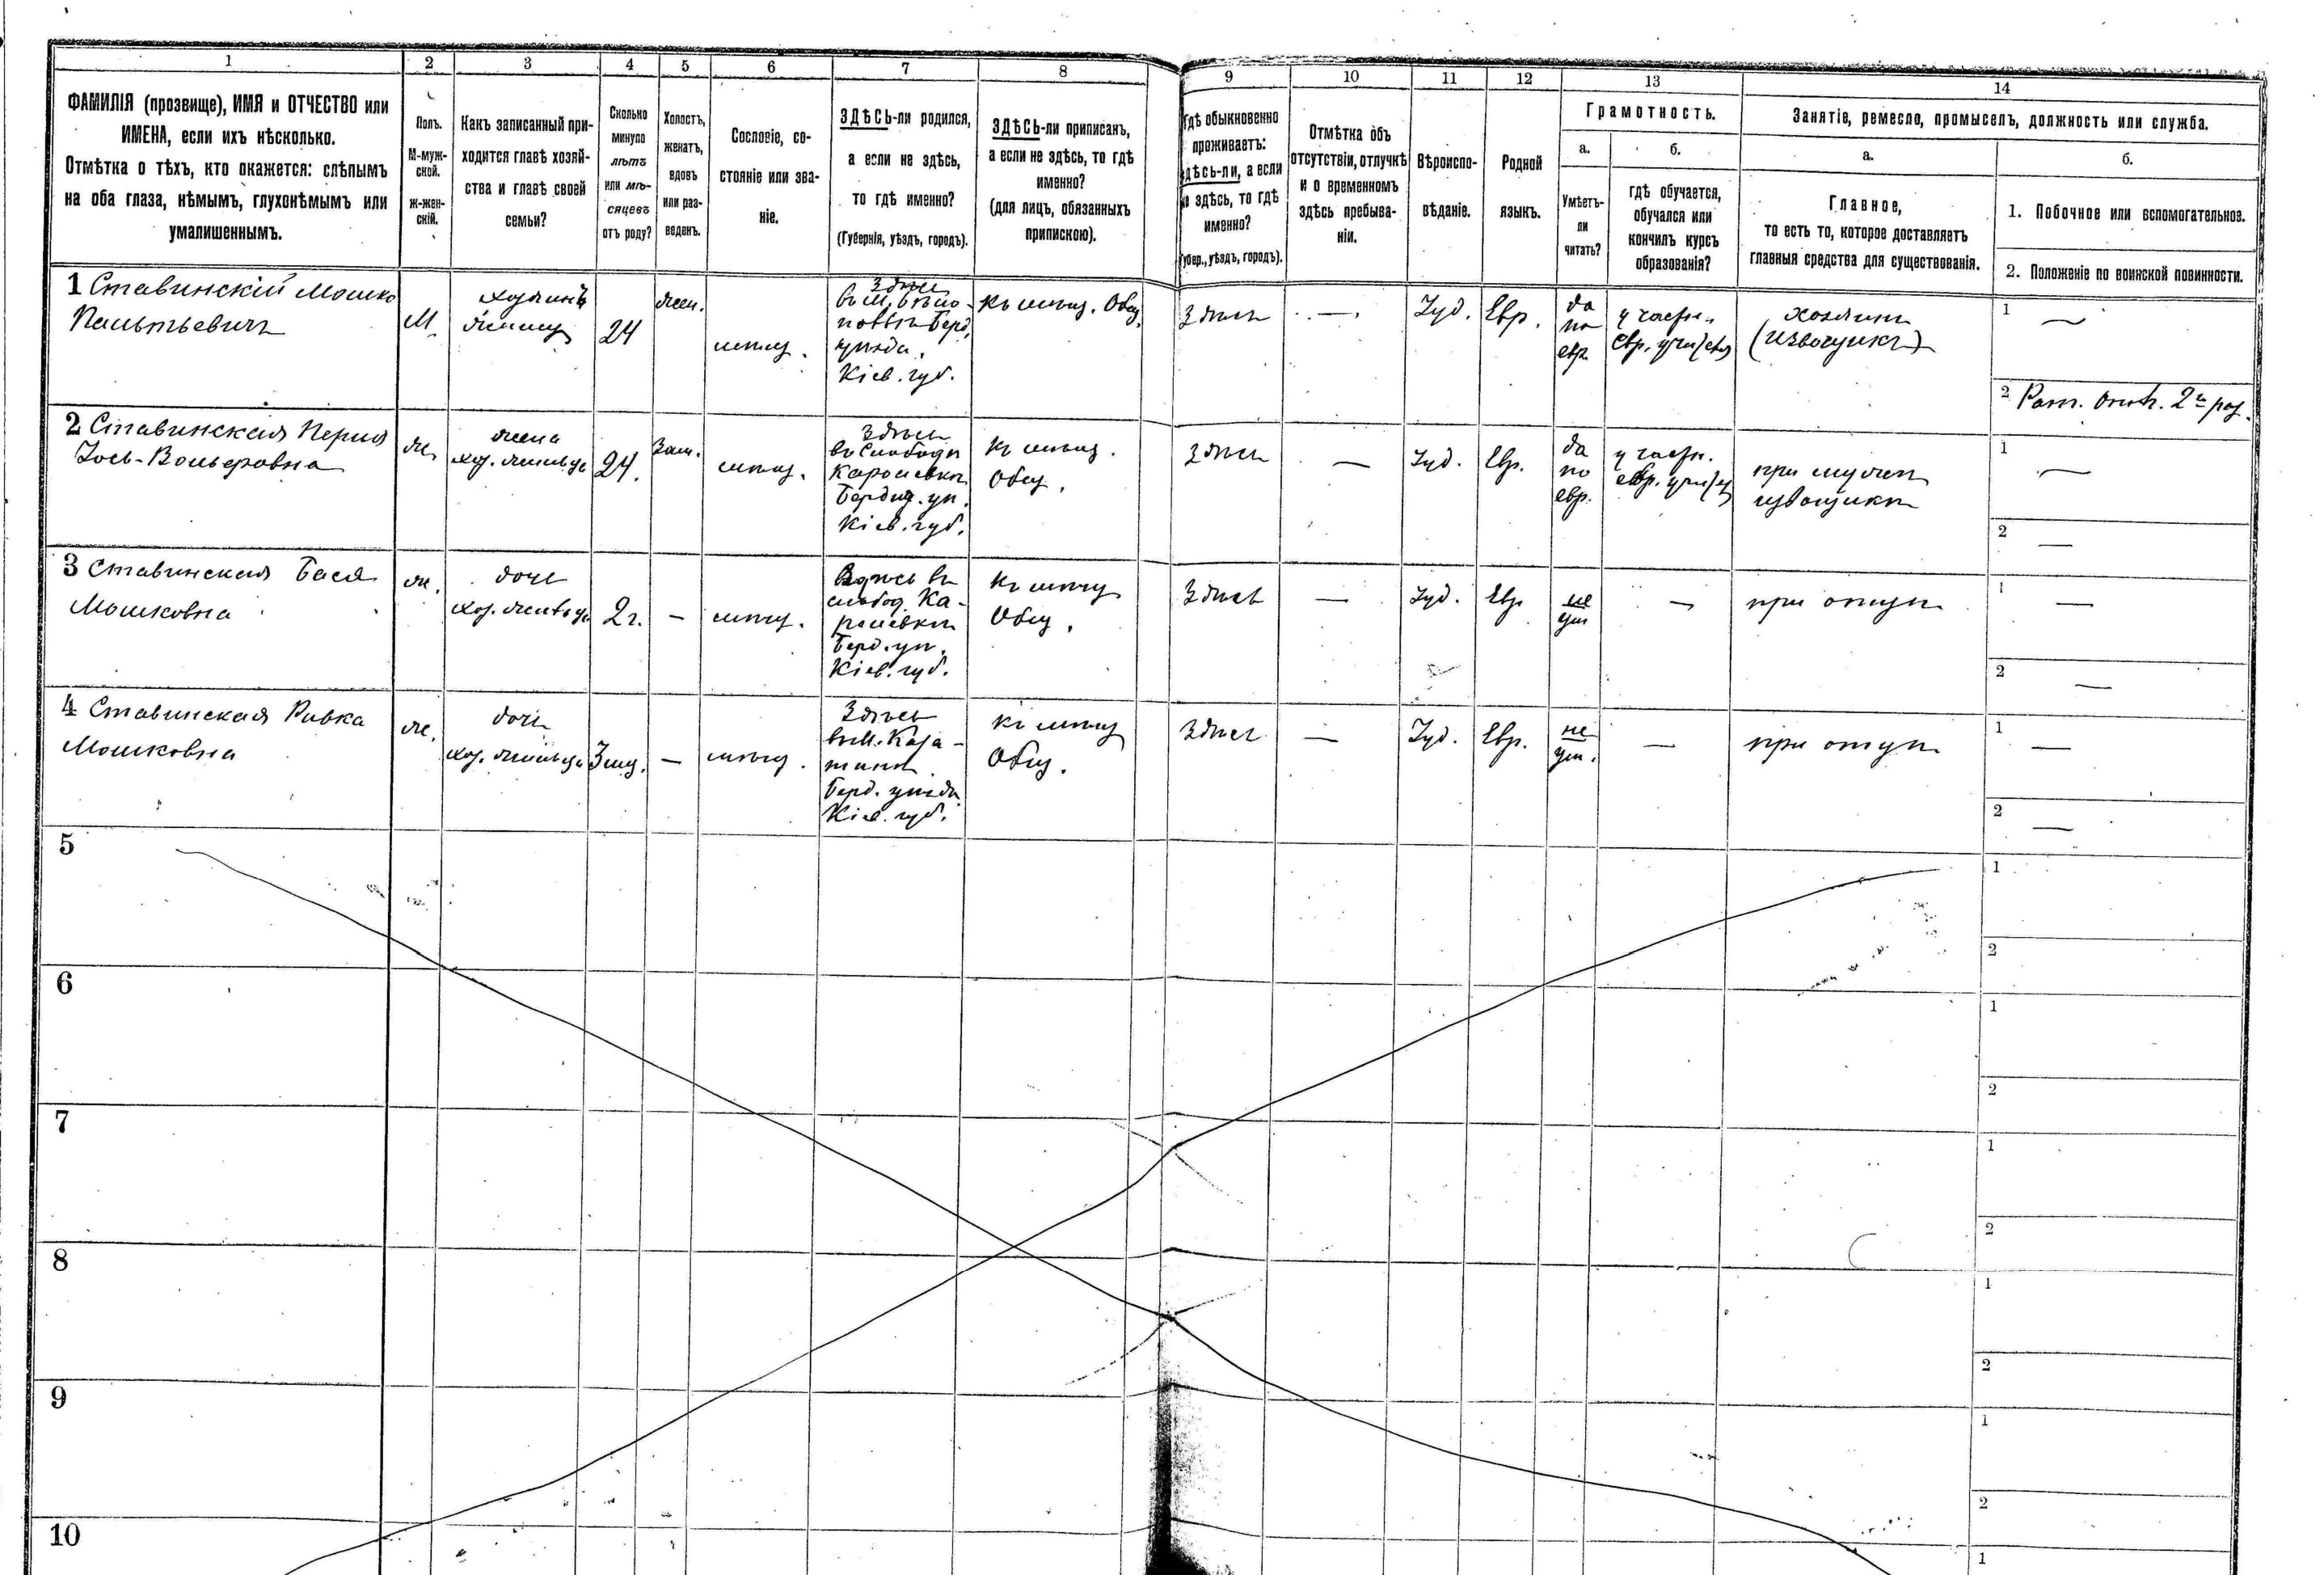 1
2
3
4
5
6
7
8
9
10
11
12
13
14
ФАМИЛІЯ (прозвище), ИМЯ и ОТЧЕСТВО или
ИМЕНА, если ихъ нѣсколько.
Отмѣтка о тѣхъ, кто окажется: слѣпымъ
на оба глаза, нѣмымъ, глухонѣмымъ или
умалишеннымъ.
Полъ.
М-муж-
ской.
ж-жен-
скій.
Какъ записанный при-
ходится главѣ хозяй-
ства и главѣ своей
семьи?
Сколько
минуло
лѣтъ
или мѣ-
сяцевъ
отъ роду?
Холостъ,
женатъ,
вдовъ
или раз-
веденъ.
Сословіе, со-
стояніе или зва-
ніе.
ЗДѢСЬ-ли родился,
а если не здѣсь,
то гдѣ именно?
(Губернія, уѣздъ, городъ).
ЗДѢСЬ-ли приписанъ,
а если не здѣсь, то гдѣ
именно?
(для лицъ, обязанныхъ
припискою).
Гдѣ обыкновенно
проживаетъ:
здѣсь-ли, а если
не здѣсь, то гдѣ
именно?
(Губер., уѣздъ, городъ).
Отмѣтка объ
отсутствіи, отлучкѣ
и о временномъ
здѣсь пребыва-
ніи.
Вѣроиспо-
вѣданіе.
Родной
языкъ.
Грамотность.
а.
Умѣетъ-
ли
читать?
б.
гдѣ обучается,
обучался или
кончилъ курсъ
образованія?
Занятіе, ремесло, промыселъ, должность или служба.
а.
Главное,
то есть то, которое доставляетъ
главныя средства для существованія.
б.
1. Побочное или вспомогательное.
2. Положеніе по воинской повинности.
1 Ставинскій Мошко
М
хозяинъ
24
жен.
мѣщ.
Здѣсь
Берд.
уѣзда.
Кіев. губ.
къ мѣщ. Общ.
Здѣсь
—
Іуд.
Евр.
да
по
евр.
у частн.
евр.
хозяинъ
(извощикъ)
1 —
2
2 Ставинская Перля
ж.
жена
24.
Зам.
мѣщ.
Здѣсь
въ Слободѣ
Кіев. губ.
къ мѣщ.
Общ.
Здѣсь
—
Іуд.
Евр.
да
по
евр.
у частн.
евр.
при мужѣ
извощикѣ
1 —
2 —
3 Ставинская Бася
Мошковна
ж.
дочь
2 г.
—
мѣщ.
Здѣсь въ
слобод. Ка-
Берд. уѣ.
Кіев. губ.
къ мѣщ
Общ.
Здѣсь
—
Іуд.
Евр
не
ум
—
при отцѣ
1 —
2 —
4 Ставинская Ривка
Мошковна
ж.
дочь
3 мц.
—
мѣщ.
Здѣсь
въ М. Каза-
тинѣ
Берд. уѣзда
Кіев. губ.
къ мѣщ
Общ.
Здѣсь
—
Іуд.
Евр.
не
ум.
—
при отцѣ
1 —
2 —
5
1
2
6
1
2
7
1
2
8
1
2
9
1
2
10
1